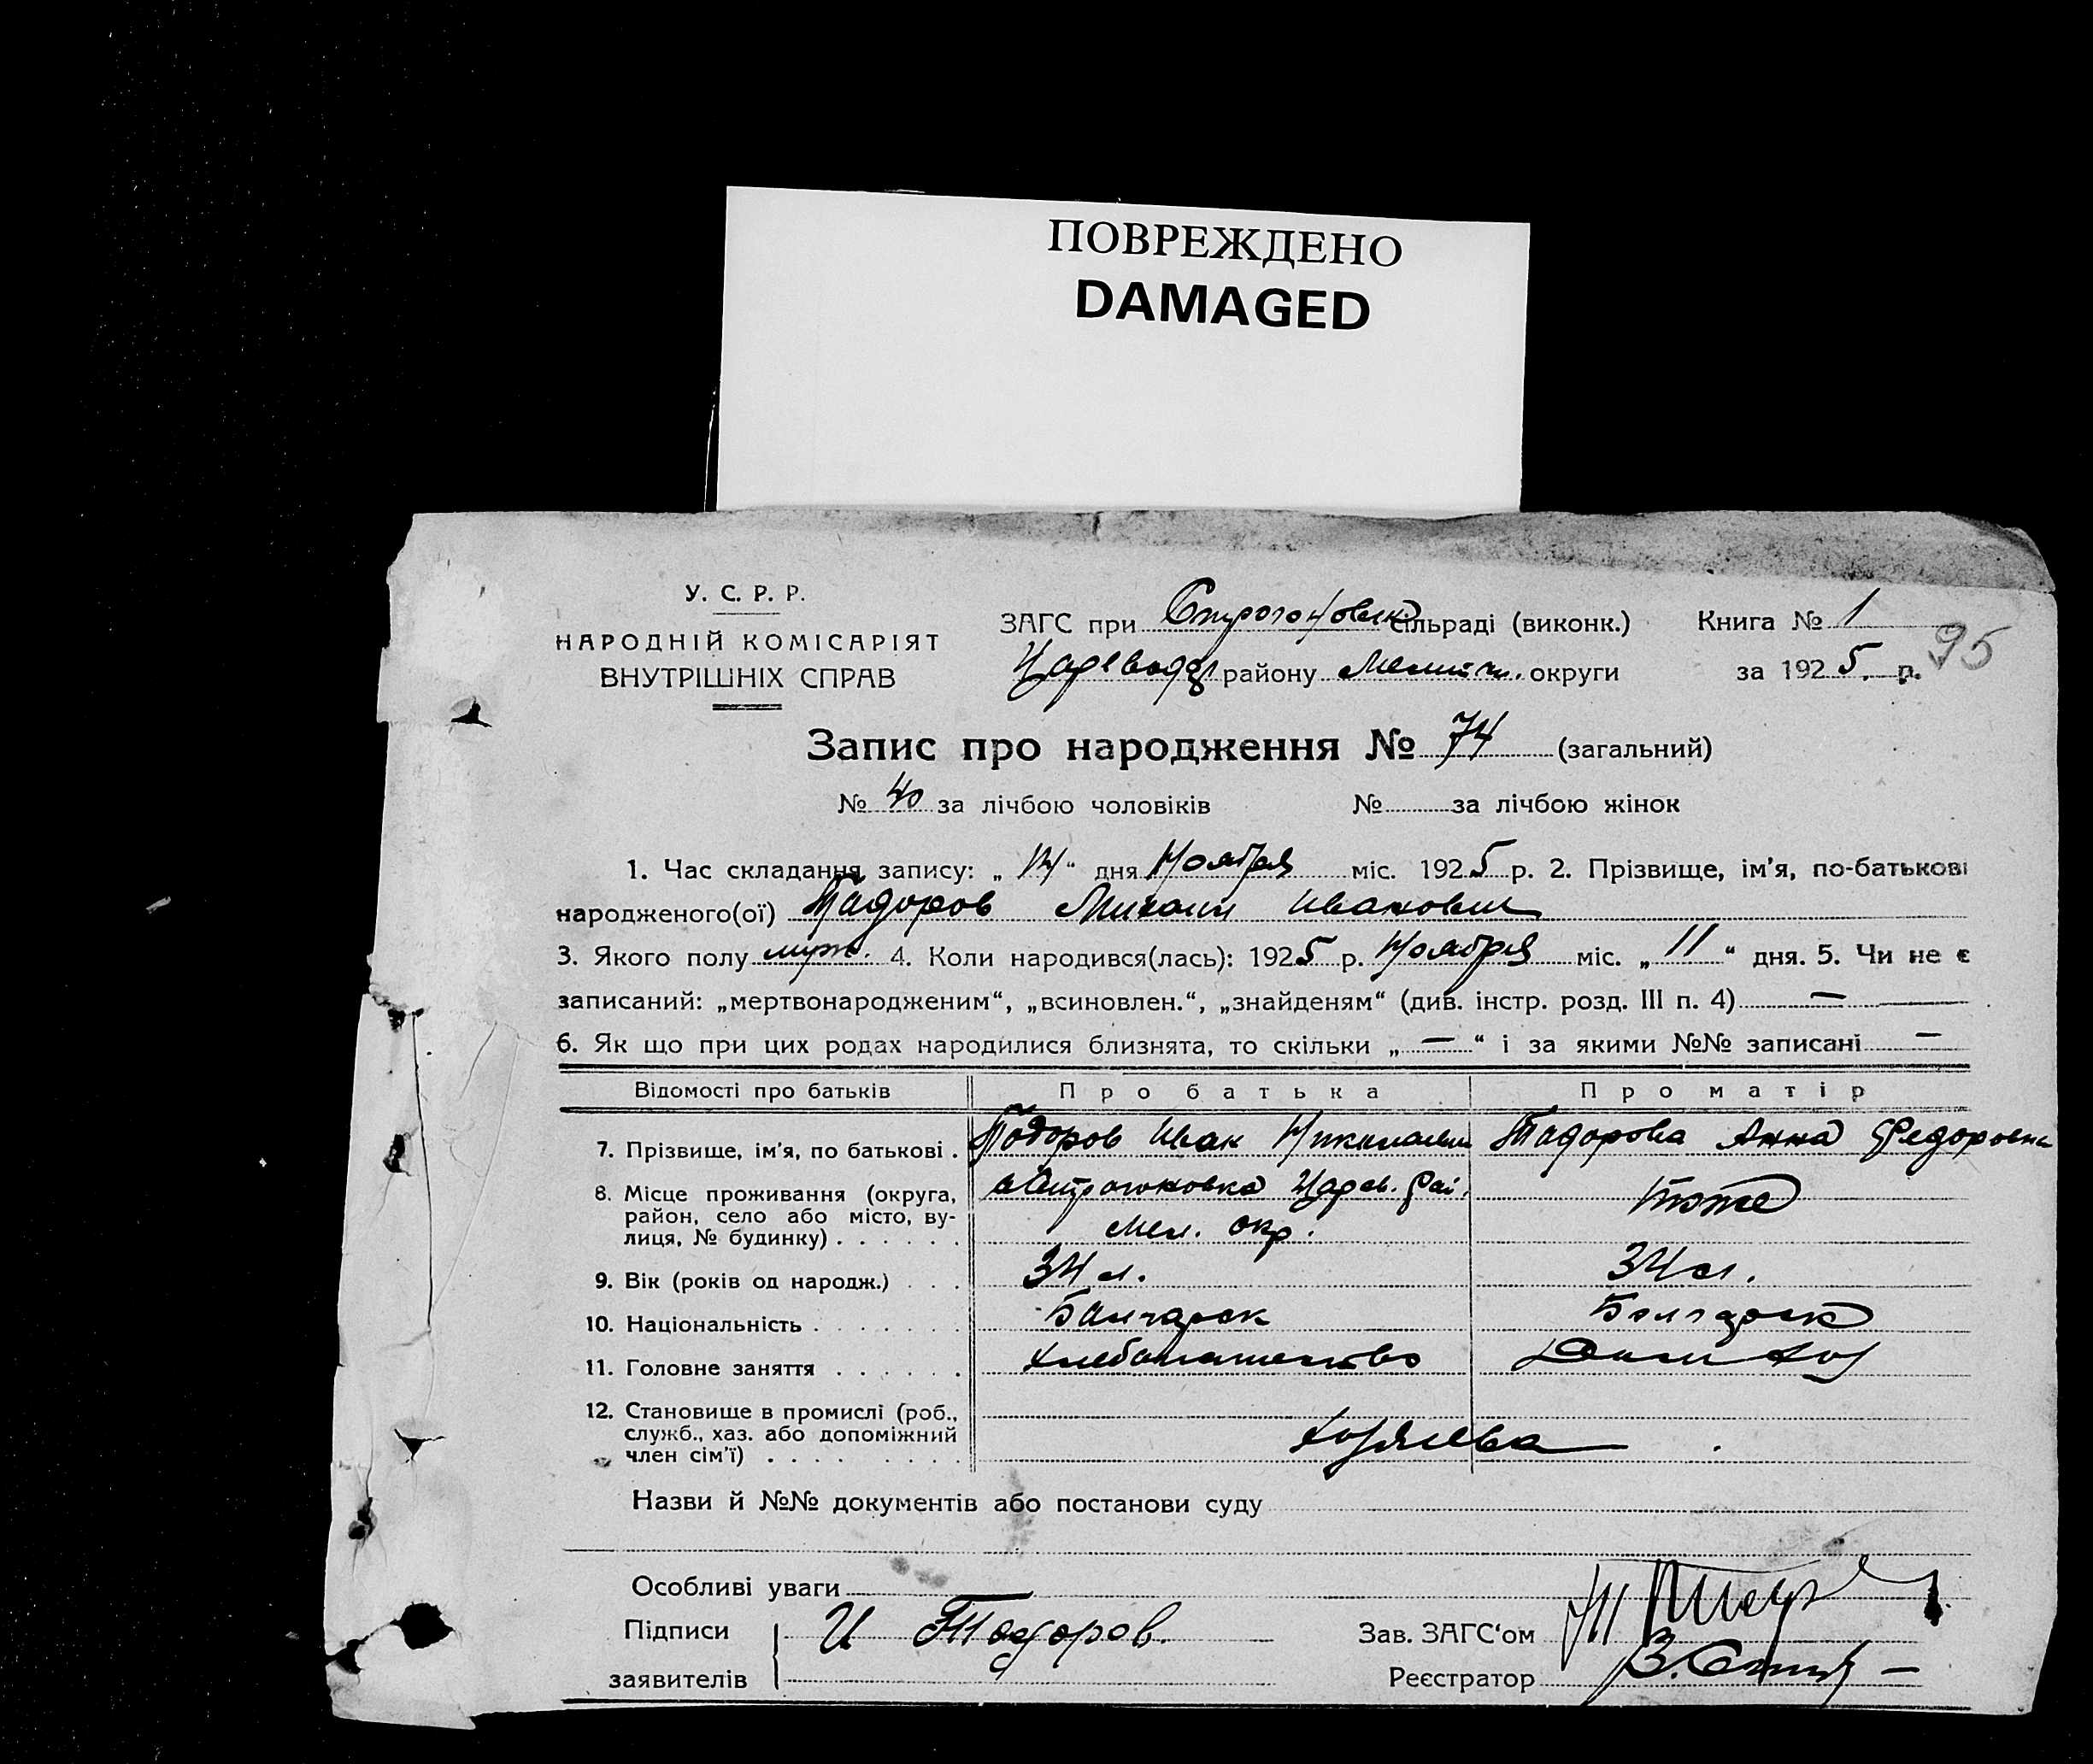 ПОВРЕЖДЕНО
DAMAGED
У. С. Р. Р.
НАРОДНІЙ КОМІСАРІЯТ
ВНУТРІШНІХ СПРАВ
ЗАГС при Строгоновск сільраді (виконк.) Книга № 1
95
Цареводр району Мелит. округи за 1925. р.
Запис про народження № 74 (загальний)
№ 40 за лічбою чоловіків № за лічбою жінок
1. Час складання запису: „14“ дня Ноября міс. 1925 р. 2. Прізвище, ім'я, по-батькові
народженого(ої) Тадоров Михаил Иванович
3. Якого полу муж. 4. Коли народився(лась): 1925 р. Ноября міс. „11“ дня. 5. Чи не є
записаний: „мертвонародженим“, „всиновлен.“, „знайденям“ (див. інстр. розд. III п. 4) —
6. Як що при цих родах народилися близнята, то скільки „—“ і за якими №№ записані —
Відомості про батьків Про батька Про матір
7. Прізвище, ім'я, по батькові . Тодоров Иван Николаевич Тадорова Анна Федоровна
8. Місце проживання (округа, район, село або місто, вулиця, № будинку) . . . . . . с Строгоновка Царев. рай. Мел. окр. тоже
9. Вік (років од народж.) . . . 34 л. 34 л.
10. Національність . . . . . . . Болгарск Болгарск
11. Головне заняття . . . . . . хлебопашество
12. Становище в промислі (роб., служб., хаз. або допоміжний член сім'ї) . . . . . . . . . хозяева
Назви й №№ документів або постанови суду
Особливі уваги
Підписи И Тодоров. Зав. ЗАГС'ом
заявителів Реєстратор